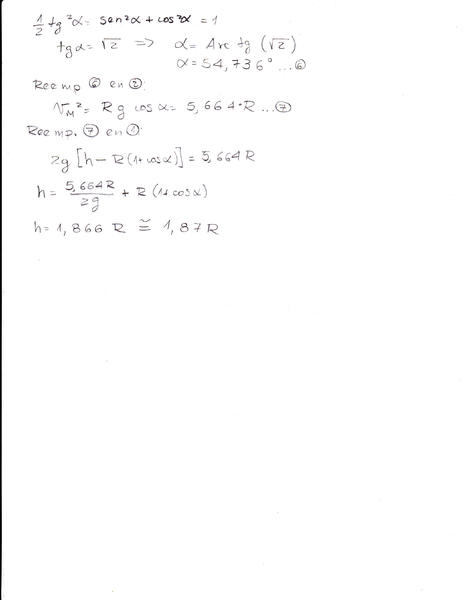 1/2 tg²α = sen²α + cos²α = 1
tg α = √2 => α = Arc tg (√2)
α = 54,736° ...⑥
Reemp ⑥ en ②:
V_M² = R g cos α = 5,664·R ...⑦
Reemp. ⑦ en ①:
2g [h - R (1+cos α)] = 5,664 R
h = 5,664R/2g + R (1+cos α)
h = 1,866 R ≅ 1,87 R